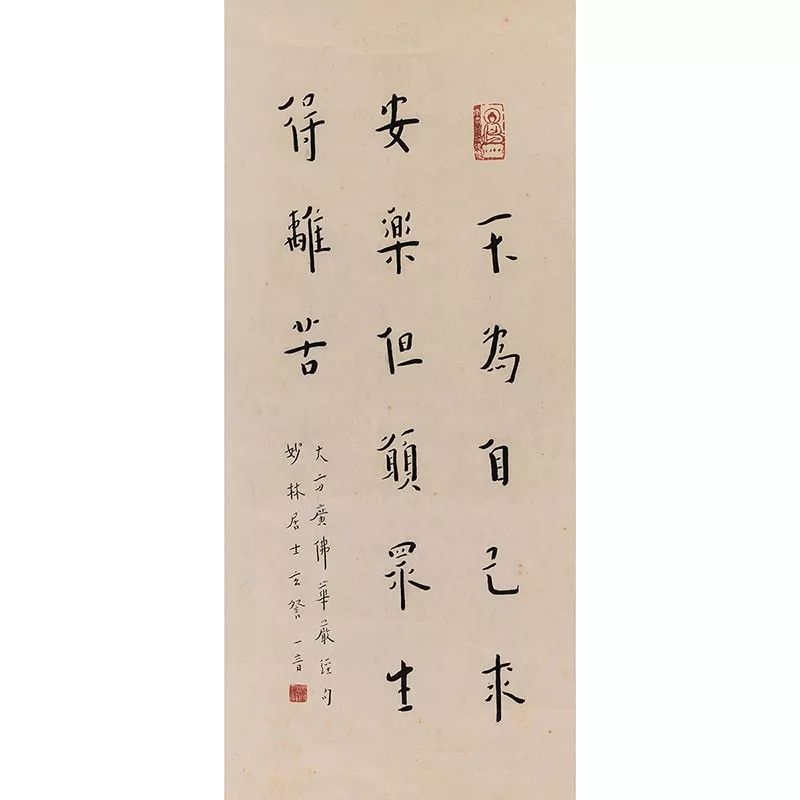 不為自己求
安樂但願眾生
得離苦
大方廣佛華嚴經句
妙林居士玄詧一音